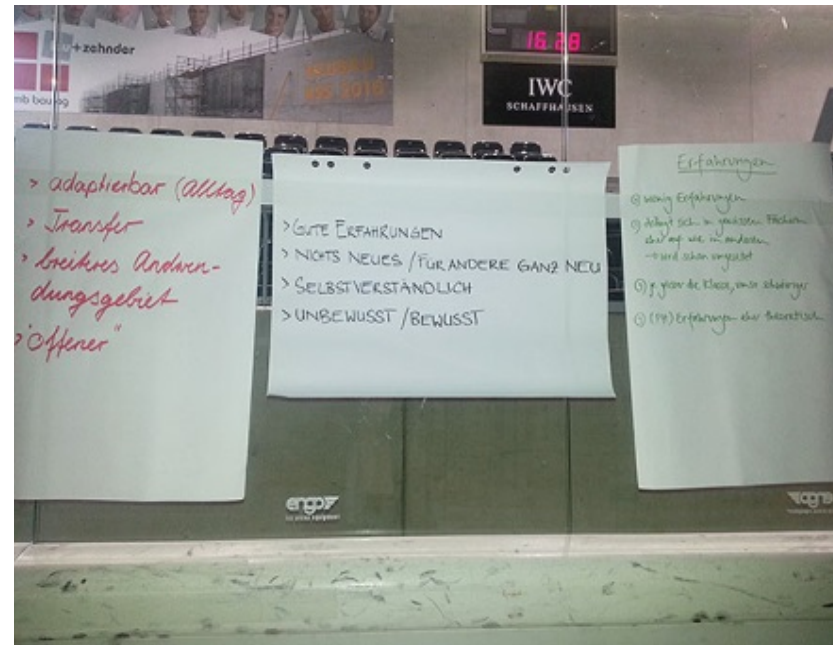 +zehnder
mb bauag
16:28
IWC
SCHAFFHAUSEN
> adaptierbar (Alltag)
> Transfer
> breiteres Andwen-
dungsgebiet
> "Offener"
> GUTE ERFAHRUNGEN
> NICHTS NEUES / FÜR ANDERE GANZ NEU
> SELBSTVERSTÄNDLICH
> UNBEWUSST / BEWUSST
Erfahrungen
wenig Erfahrungen
drängt sich in gewissen Fächern
eher auf wie in anderen
→ wird schon umgesetzt
je grösser die Klasse, umso schwieriger
(PH) Erfahrungen eher theoretisch
engo